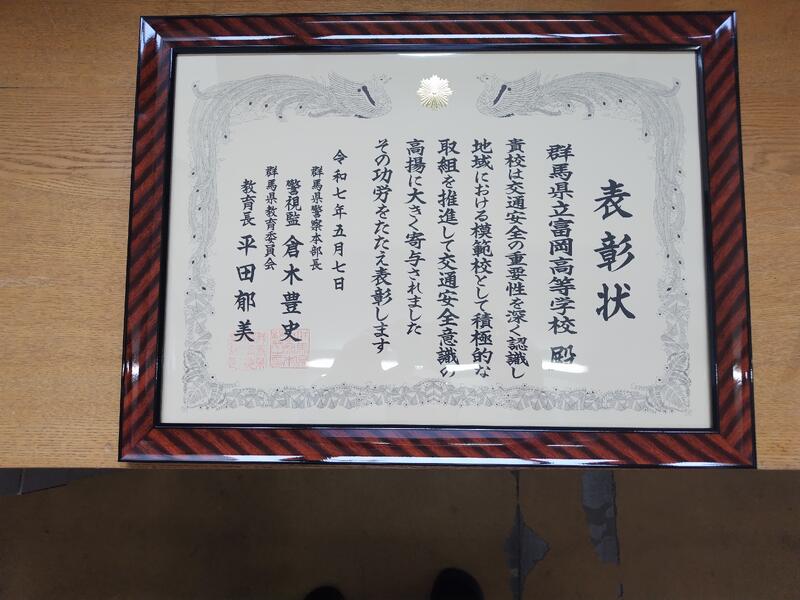 表彰状
群馬県立富岡高等学校 殿
貴校は交通安全の重要性を深く認識し
地域における模範校として積極的な
取組を推進して交通安全意識の
高揚に大きく寄与されました
その功労をたたえ表彰します
令和七年五月七日
群馬県警察本部長
警視監 倉木豊史
群馬県教育委員会
教育長 平田郁美